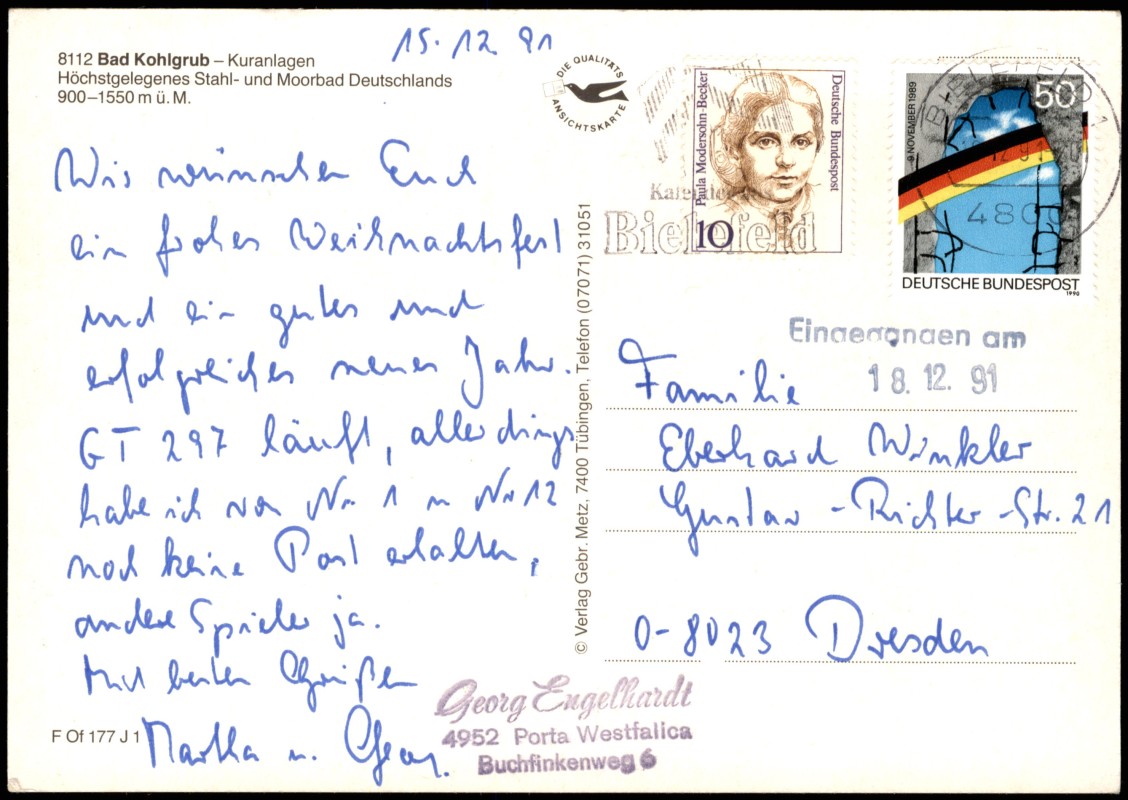 15.12.91
8112 Bad Kohlgrub – Kuranlagen
Höchstgelegenes Stahl- und Moorbad Deutschlands
900–1550 m ü. M.
DIE QUALITÄTS
ANSICHTSKARTE
Paula Modersohn-Becker
Deutsche Bundespost
10
Bielefeld
9. NOVEMBER 1989
50
DEUTSCHE BUNDESPOST
1990
BIELEFELD 1
4800
Wir wünschen Euch
ein frohes Weihnachtsfest
und ein gutes und
erfolgreiches neues Jahr.
GT 297 läuft, allerdings
habe ich von Nr. 1 u Nr 12
noch keine Post erhalten,
andere Spieler ja.
Mit besten Grüßen
Martha u. Georg.
F Of 177 J 1
© Verlag Gebr. Metz, 7400 Tübingen, Telefon (07071) 31051
Eingegangen am
18. 12. 91
Familie
Eberhard Winkler
Gustav-Richter-Str. 21
O-8023 Dresden
Georg Engelhardt
4952 Porta Westfalica
Buchfinkenweg 6